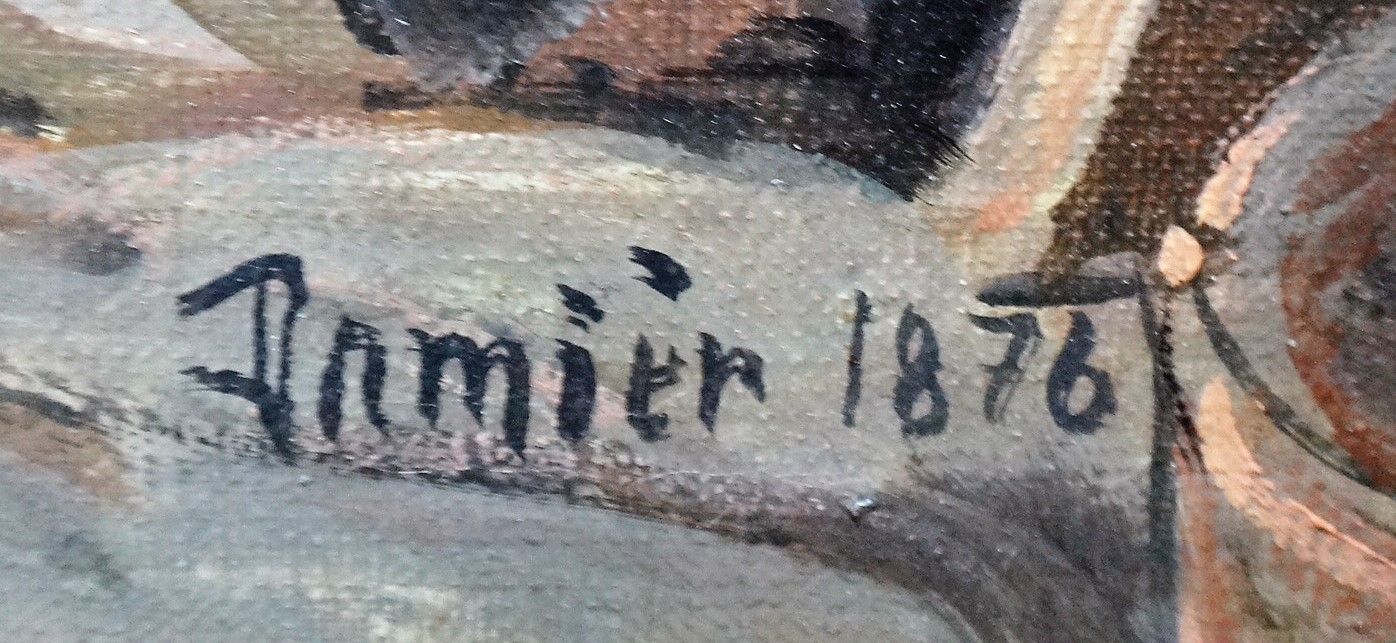 Damiër 1876